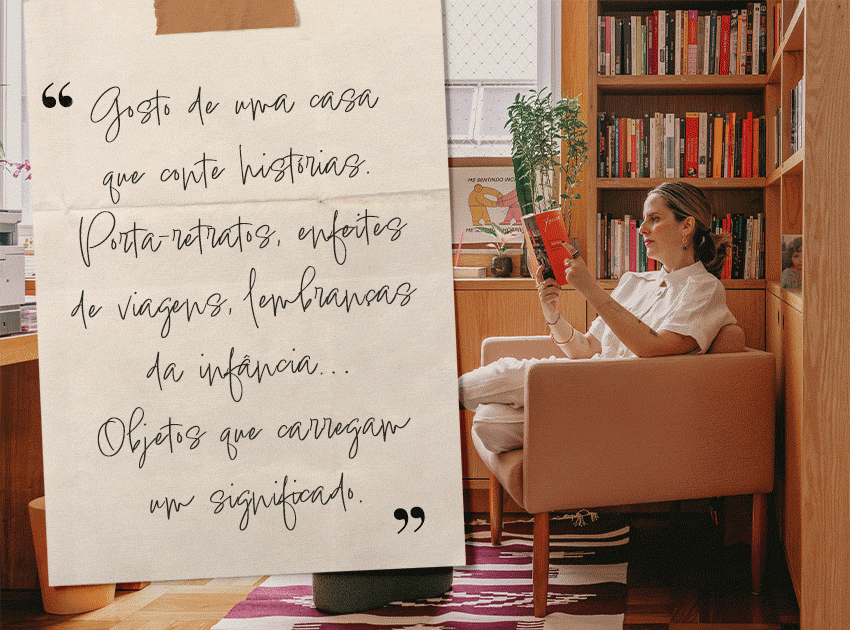 “ Gosto de uma casa
que conte histórias.
Porta-retratos, enfeites
de viagens, lembranças
da infância...
Objetos que carregam
um significado. ”
ME SENTINDO